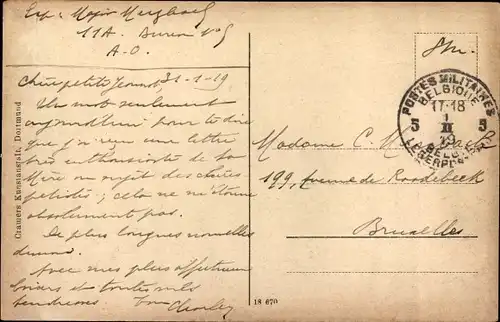 Exp: Major
11A. Buren N° 5
A-O.
Chère petite Jeannot, 31-1-19
Un mot seulement
aujourd'hui pour te dire
que j'ai reçu une lettre
très enthousiaste de ta
Mère au sujet des
; cela ne m'étonne
absolument pas.
De plus longues nouvelles
demain.
Avec mes plus affectueux
baisers et toutes mes
tendresses. Ton Charley
Cramers Kunstanstalt, Dortmund
18 670
POSTES MILITAIRES
BELGIQUE
17-18
1
II
19
5 5
BELGIË
LEGERPOSTERIJ
Madame C.
199, Avenue de Roodebeek
Bruxelles